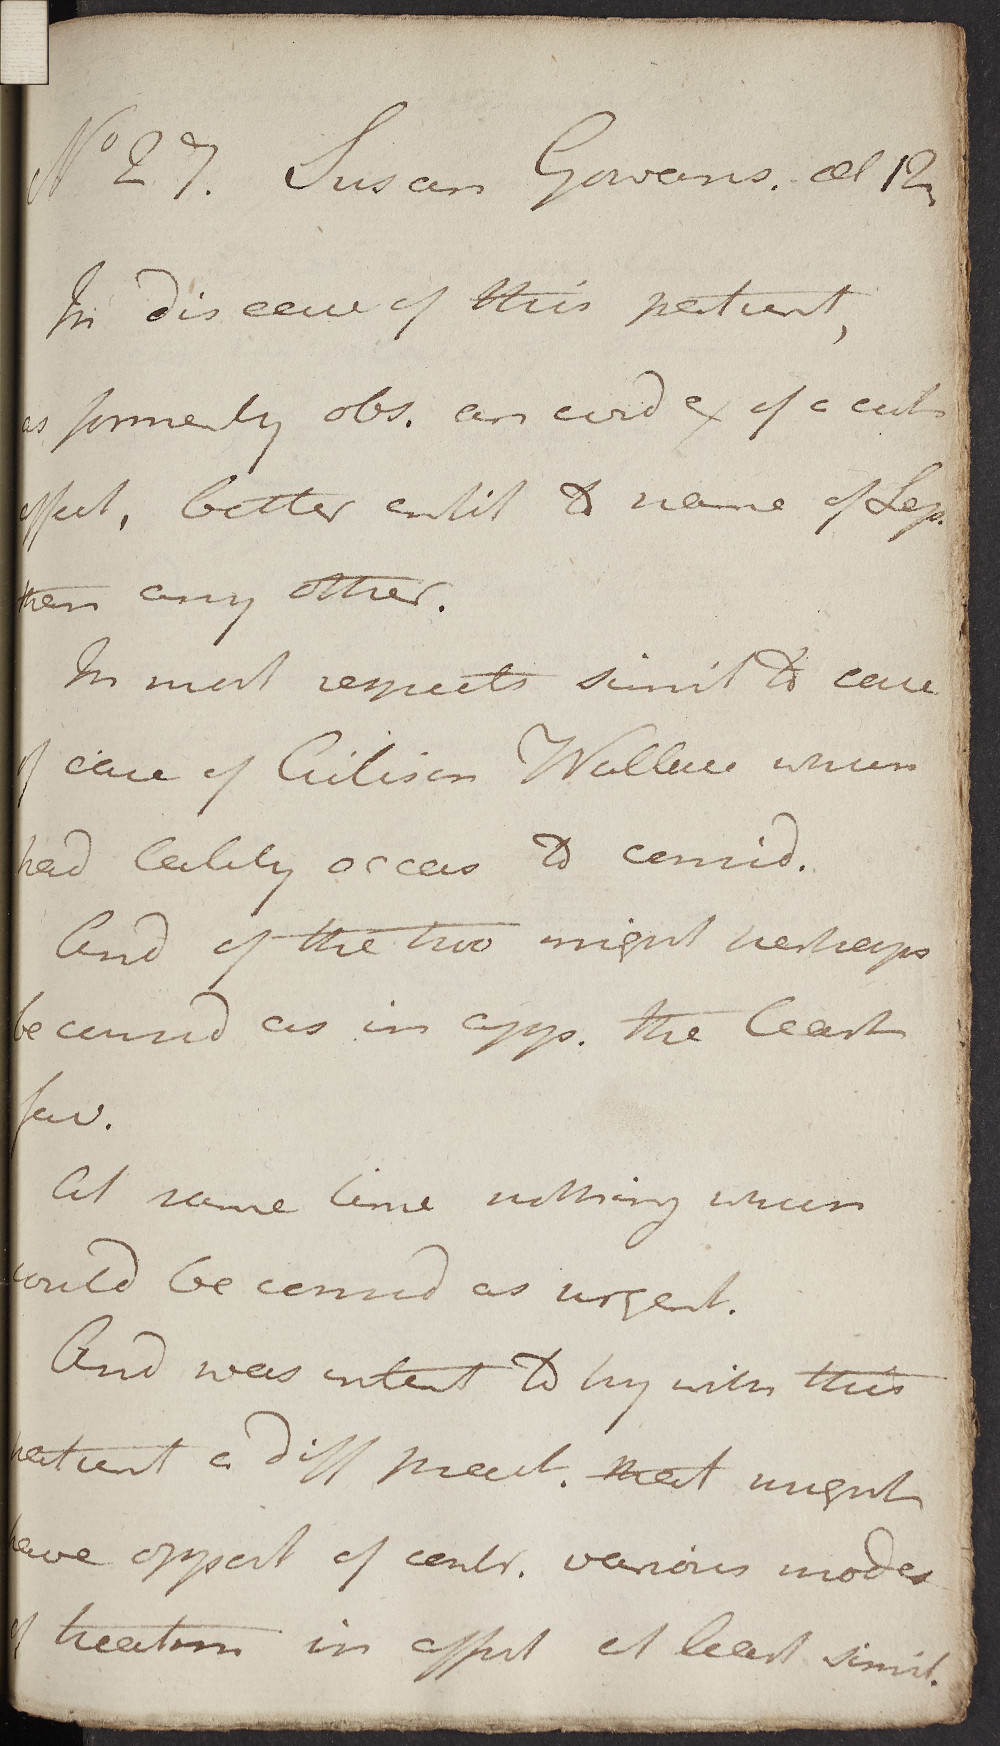 No 27. Susan Gowans. æt 12
In disease of this patient,
as formerly obs. an evid ex of a cut
affect, better entit to name of Lep.
than any other.
In most respects simil to case
of case of Alison Wallace whom
had lately occas to consid.
And of the two might perhaps
be consid as in app. the least
fav.
At same time nothing whch
could be consid as urgent.
And was intent to try with this
patient a diff pract. that might
have opport of contr. various modes
of treatm in affect at least simil.